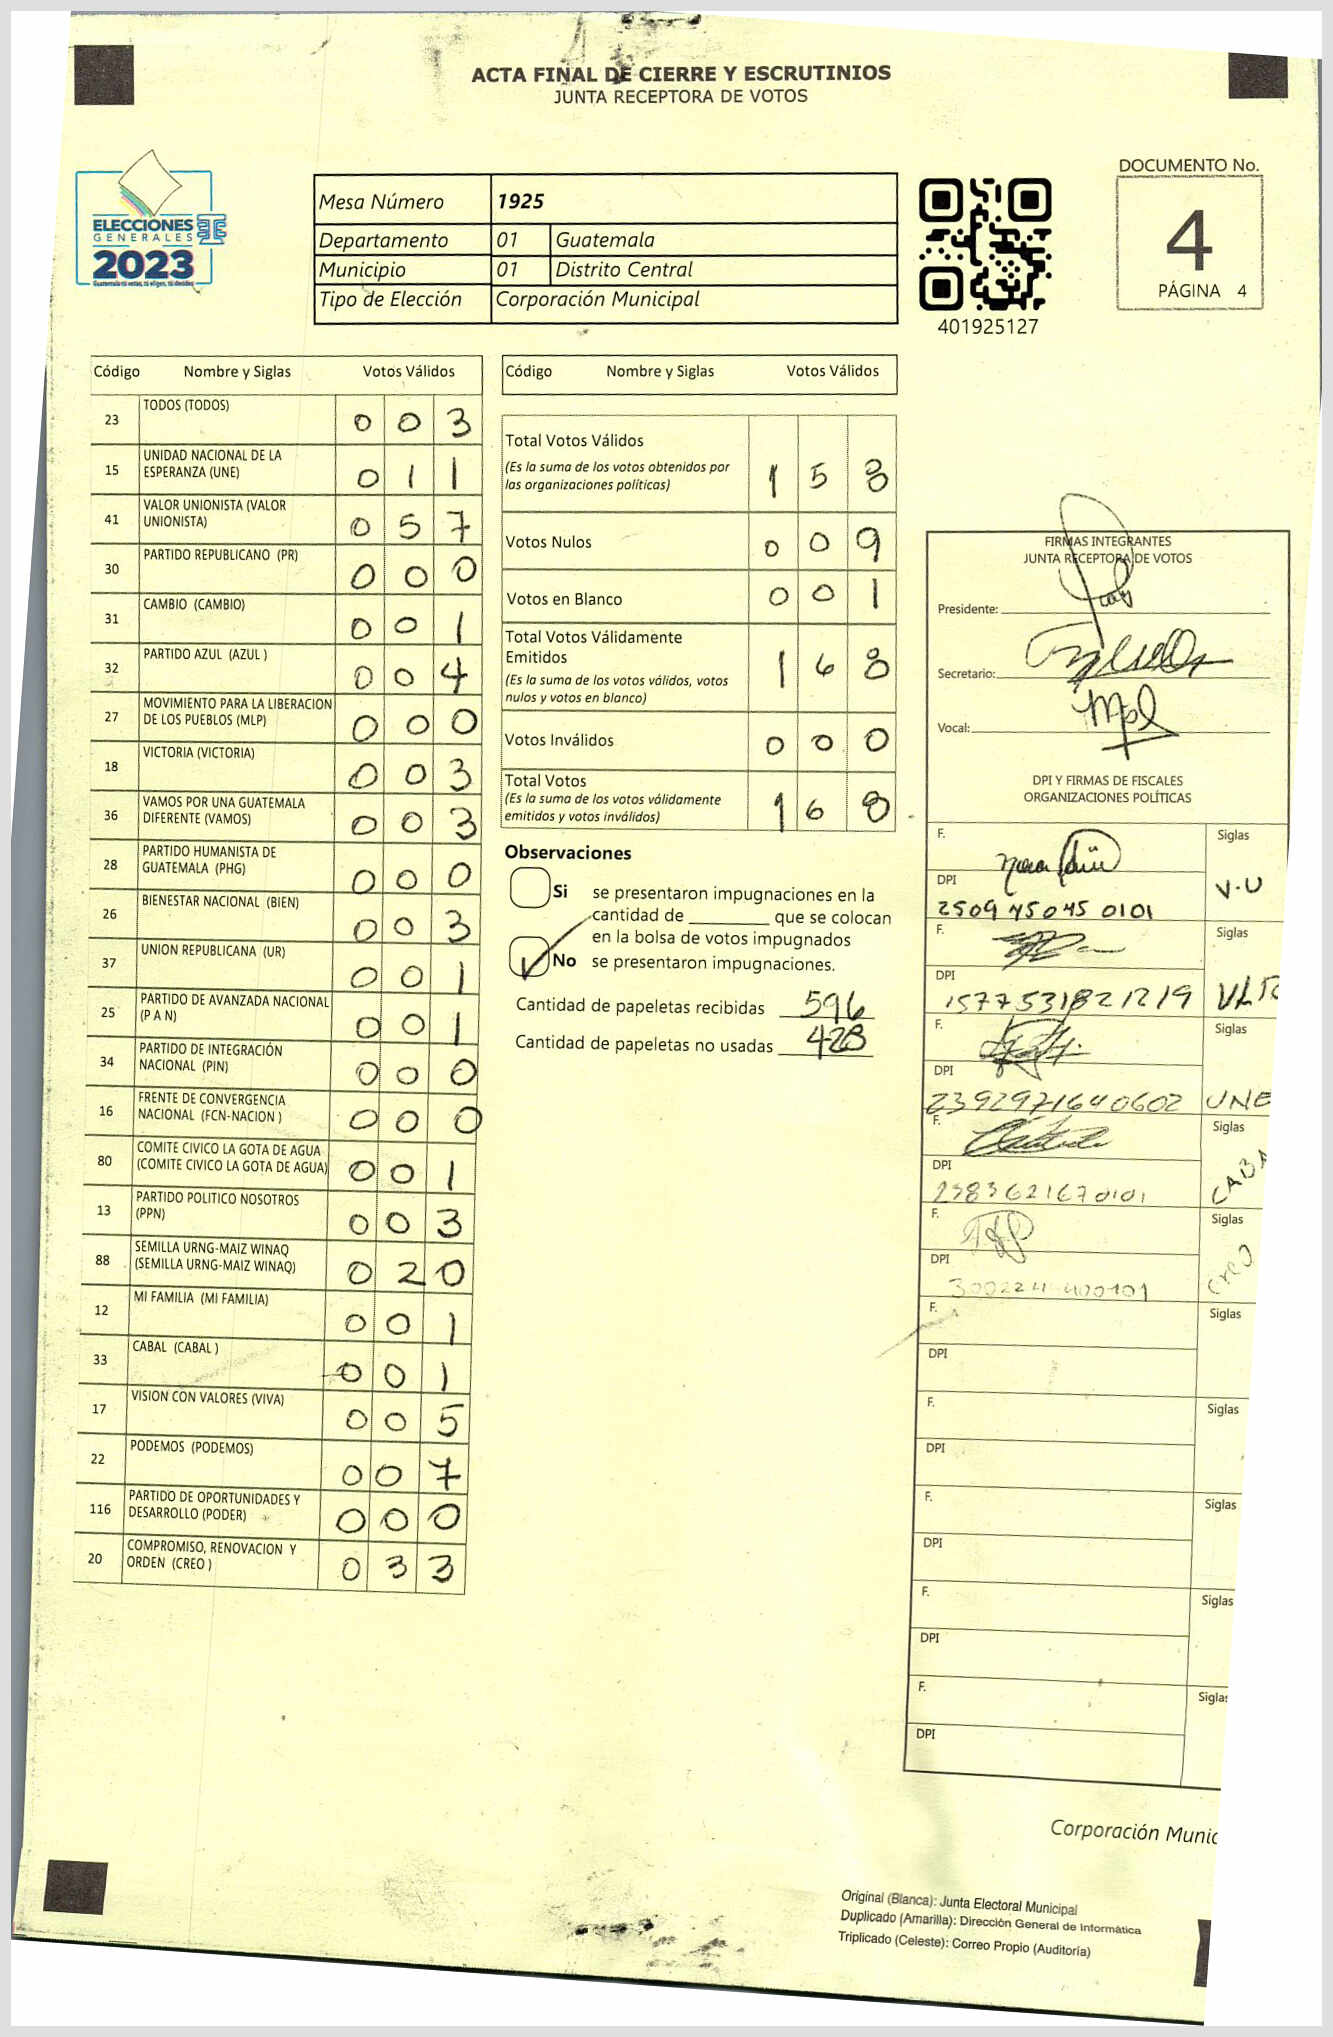 ACTA FINAL DE CIERRE Y ESCRUTINIOS
JUNTA RECEPTORA DE VOTOS
ELECCIONES
GENERALES
2023
Guatemala tú votas, tú eliges, tú decides
Mesa Número 1925
Departamento 01 Guatemala
Municipio 01 Distrito Central
Tipo de Elección Corporación Municipal
401925127
DOCUMENTO No.
4
PÁGINA 4
Código Nombre y Siglas Votos Válidos
23 TODOS (TODOS) 0 0 3
15 UNIDAD NACIONAL DE LA
ESPERANZA (UNE) 0 1 1
41 VALOR UNIONISTA (VALOR
UNIONISTA) 0 5 7
30 PARTIDO REPUBLICANO (PR) 0 0 0
31 CAMBIO (CAMBIO) 0 0 1
32 PARTIDO AZUL (AZUL ) 0 0 4
27 MOVIMIENTO PARA LA LIBERACION
DE LOS PUEBLOS (MLP) 0 0 0
18 VICTORIA (VICTORIA) 0 0 3
36 VAMOS POR UNA GUATEMALA
DIFERENTE (VAMOS) 0 0 3
28 PARTIDO HUMANISTA DE
GUATEMALA (PHG) 0 0 0
26 BIENESTAR NACIONAL (BIEN) 0 0 3
37 UNION REPUBLICANA (UR) 0 0 1
25 PARTIDO DE AVANZADA NACIONAL
(P A N) 0 0 1
34 PARTIDO DE INTEGRACIÓN
NACIONAL (PIN) 0 0 0
16 FRENTE DE CONVERGENCIA
NACIONAL (FCN-NACION ) 0 0 0
80 COMITE CIVICO LA GOTA DE AGUA
(COMITE CIVICO LA GOTA DE AGUA) 0 0 1
13 PARTIDO POLITICO NOSOTROS
(PPN) 0 0 3
88 SEMILLA URNG-MAIZ WINAQ
(SEMILLA URNG-MAIZ WINAQ) 0 2 0
12 MI FAMILIA (MI FAMILIA) 0 0 1
33 CABAL (CABAL ) 0 0 1
17 VISION CON VALORES (VIVA) 0 0 5
22 PODEMOS (PODEMOS) 0 0 7
116 PARTIDO DE OPORTUNIDADES Y
DESARROLLO (PODER) 0 0 0
20 COMPROMISO, RENOVACION Y
ORDEN (CREO ) 0 3 3
Código Nombre y Siglas Votos Válidos
Total Votos Válidos
(Es la suma de los votos obtenidos por
las organizaciones políticas) 1 5 8
Votos Nulos 0 0 9
Votos en Blanco 0 0 1
Total Votos Válidamente
Emitidos
(Es la suma de los votos válidos, votos
nulos y votos en blanco) 1 6 8
Votos Inválidos 0 0 0
Total Votos
(Es la suma de los votos válidamente
emitidos y votos inválidos) 1 6 8
Observaciones
Si se presentaron impugnaciones en la
cantidad de ________ que se colocan
en la bolsa de votos impugnados
No se presentaron impugnaciones.
Cantidad de papeletas recibidas 596
Cantidad de papeletas no usadas 428
FIRMAS INTEGRANTES
JUNTA RECEPTORA DE VOTOS
Presidente:
Secretario:
Vocal:
DPI Y FIRMAS DE FISCALES
ORGANIZACIONES POLÍTICAS
F. Siglas
V-U
DPI
2509 45045 0101
F. Siglas
DPI
1577531821219
F. Siglas
DPI
2392971640602 UNE
F. Siglas
CABA
DPI
2983621670101
F. Siglas
CREO
DPI
F. Siglas
DPI
F. Siglas
DPI
F. Siglas
DPI
F. Siglas
DPI
F. Siglas
DPI
Corporación Munic
Original (Blanca): Junta Electoral Municipal
Duplicado (Amarilla): Dirección General de Informática
Triplicado (Celeste): Correo Propio (Auditoría)